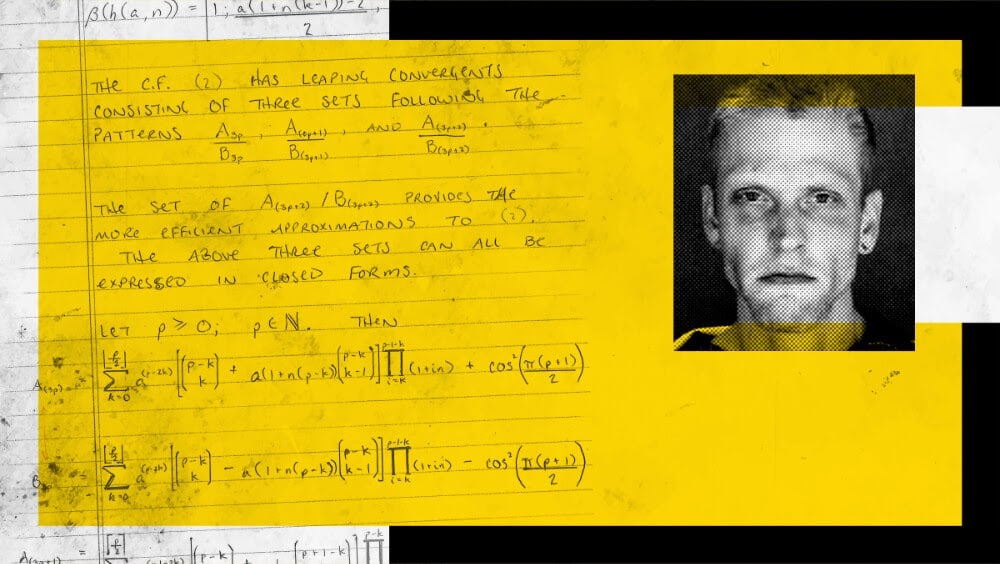 β(h(a,n)) = [1; a(1+n(k-1))-2 / 2,
THE C.F. (2) HAS LEAPING CONVERGENTS
CONSISTING OF THREE SETS FOLLOWING THE
PATTERNS A_{3p}/B_{3p}, A_{(3p+1)}/B_{(3p+1)}, AND A_{(3p+2)}/B_{(3p+2)}.
THE SET OF A_{(3p+2)}/B_{(3p+2)} PROVIDES THE
MORE EFFICIENT APPROXIMATIONS TO (2).
THE ABOVE THREE SETS CAN ALL BE
EXPRESSED IN CLOSED FORMS.
LET p ≥ 0; p ∈ ℕ. THEN
A_{(3p)} = ∑_{k=0}^{⌊p/2⌋} a^{(p-2k)} [(p-k choose k) + a(1+n(p-k))(p-k choose k-1)] ∏_{i=k}^{p-1-k} (1+in) + cos²(π(p+1)/2)
B = ∑_{k=0}^{⌊p/2⌋} a^{(p-2k)} [(p-k choose k) - a(1+n(p-k))(p-k choose k-1)] ∏_{i=k}^{p-1-k} (1+in) - cos²(π(p+1)/2)
A_{(3p+1)} = ∑^{⌊p/2⌋} [(p-k) + [(p+1-k) ∏^{p-k}